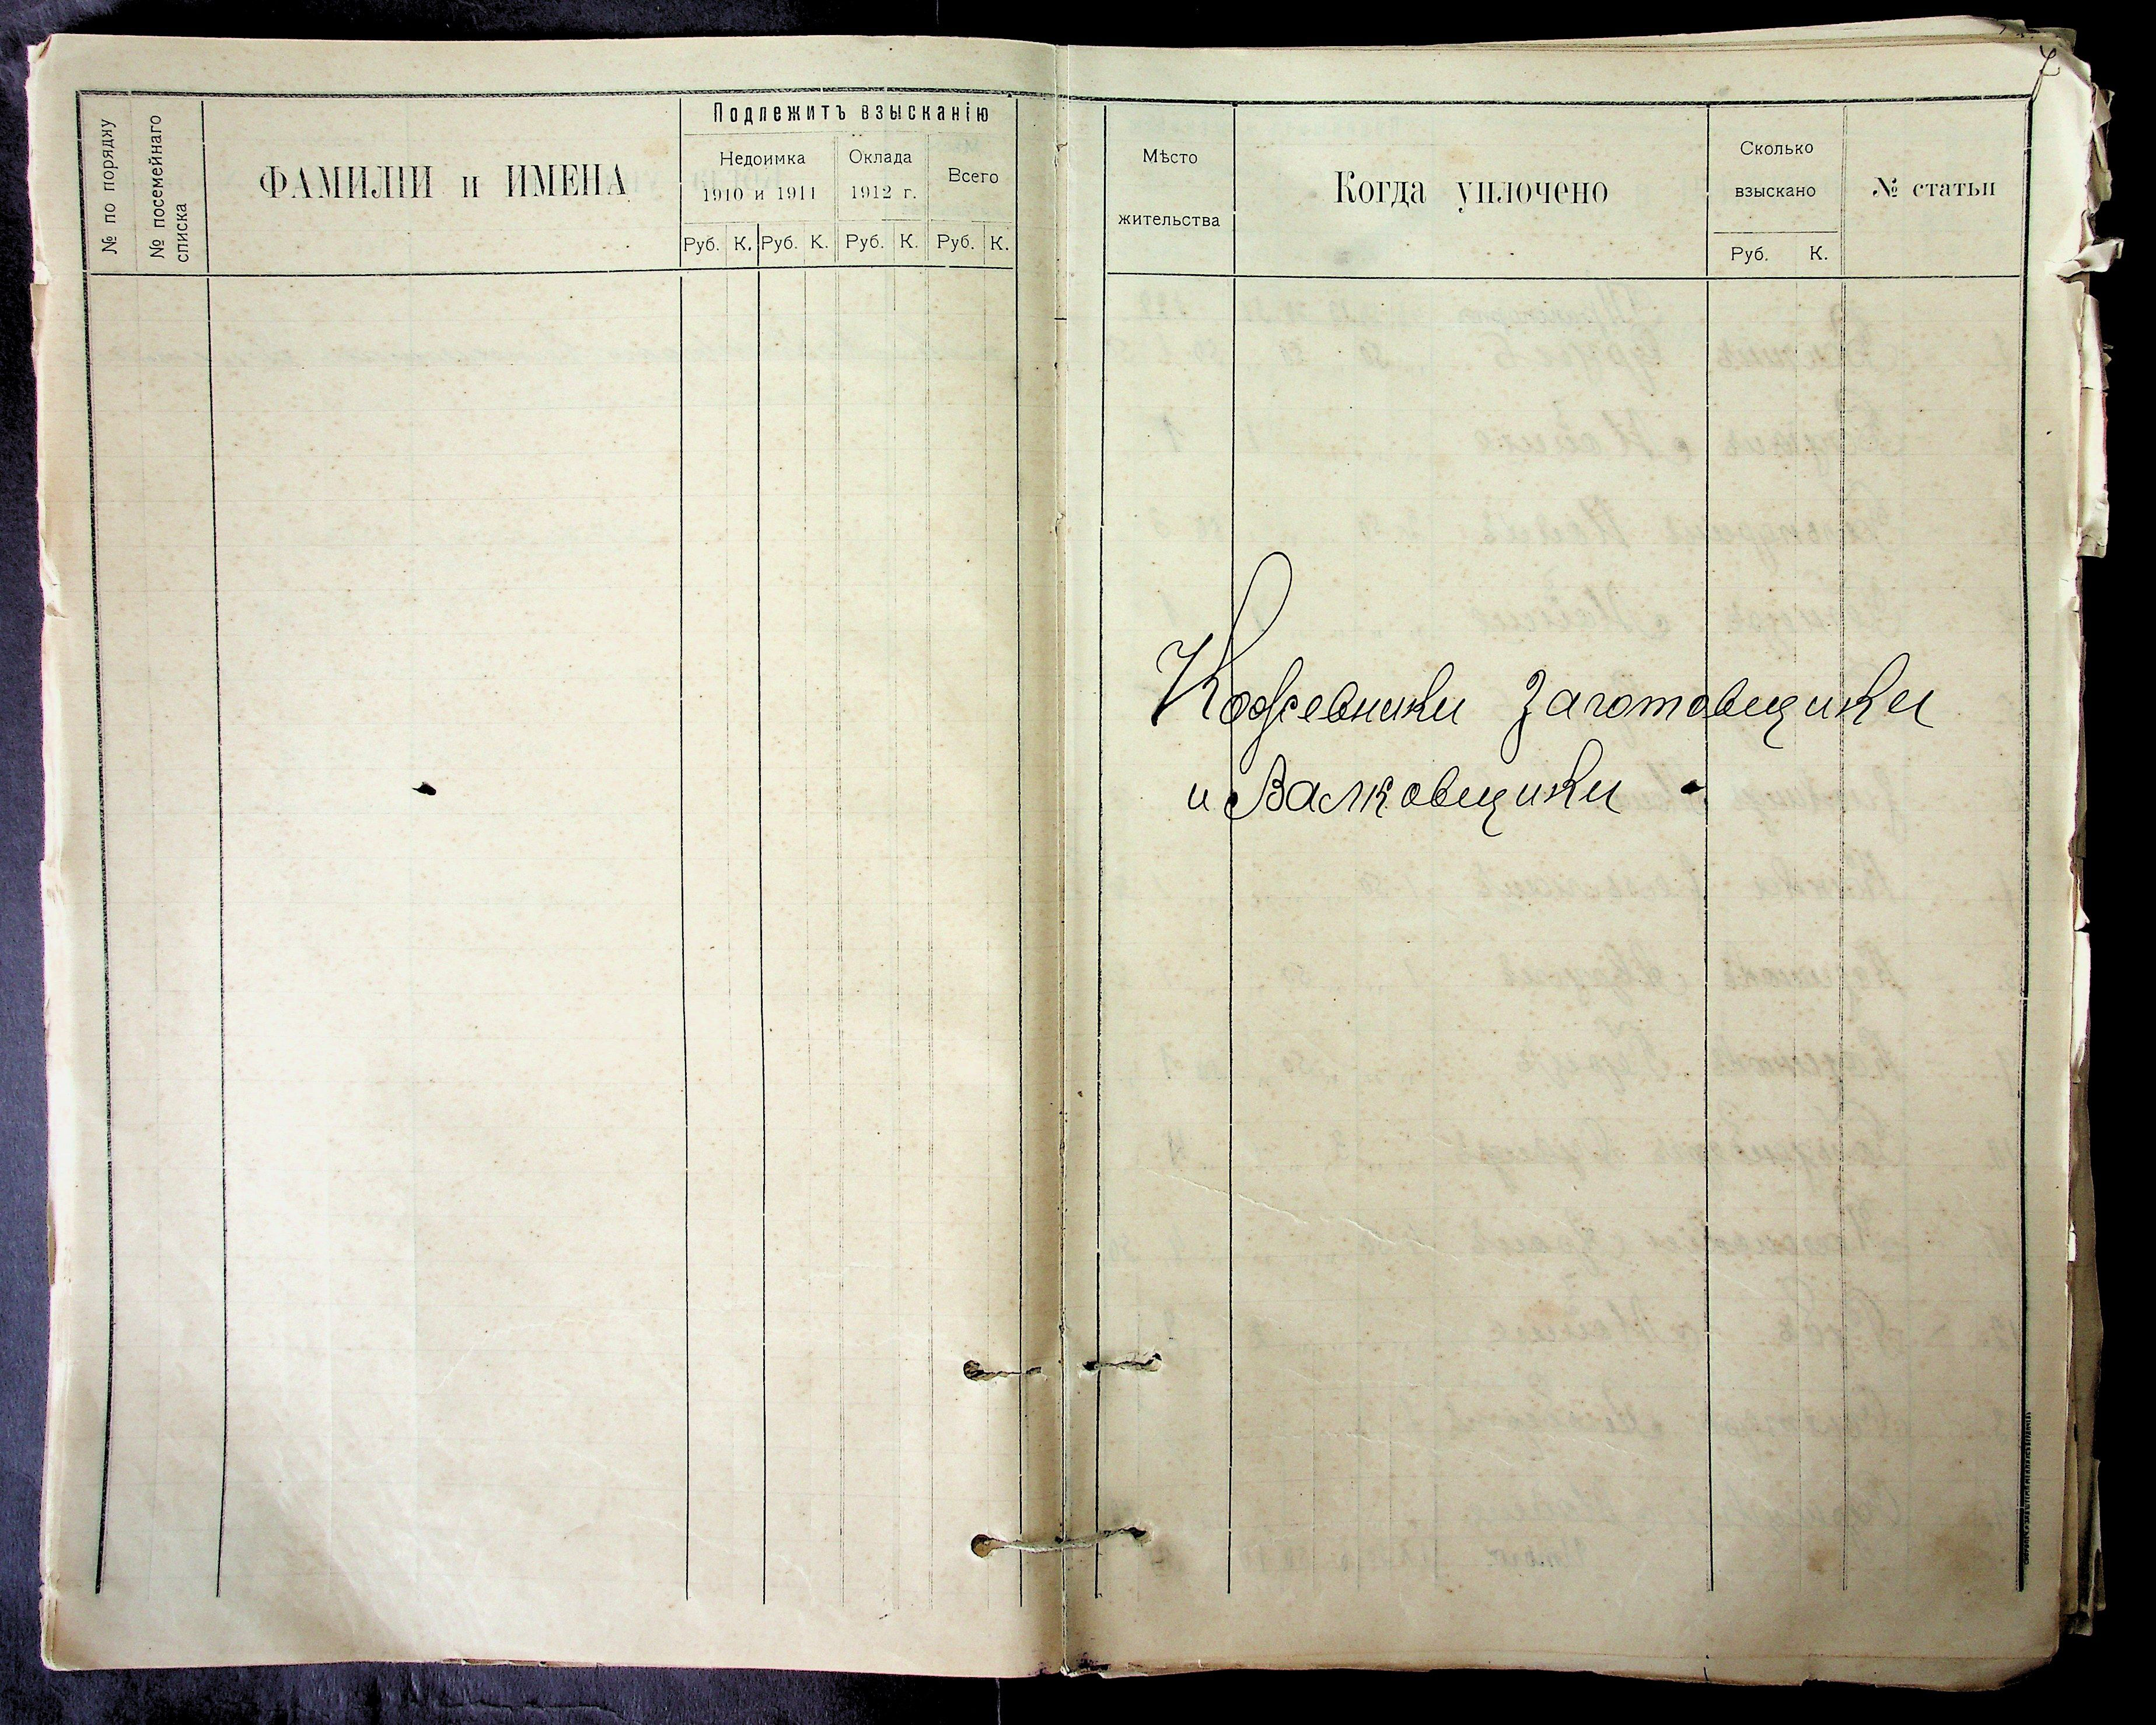 7
Подлежитъ взысканію
№ по порядку
№ посемейнаго
списка
ФАМИЛІИ и ИМЕНА
Недоимка
1910 и 1911
Оклада
1912 г.
Всего
Руб. К. Руб. К. Руб. К. Руб. К.
Мѣсто
жительства
Когда уплочено
Сколько
взыскано
Руб. К.
№ статьи
Кожевники Заготовщики
и Валковщики